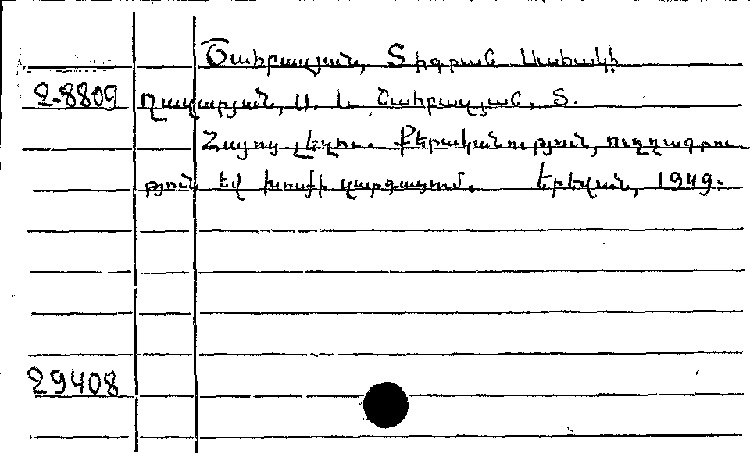 Շահբազյան, Տիգրան Սահակի
2-8809 Ղազարյան, Ս. և Շահբազյան, Տ.
Հայոց լեզու. Քերականություն, ուղղագրու
թյուն եվ խոսքի զարգացում. Երեվան, 1949։
29408